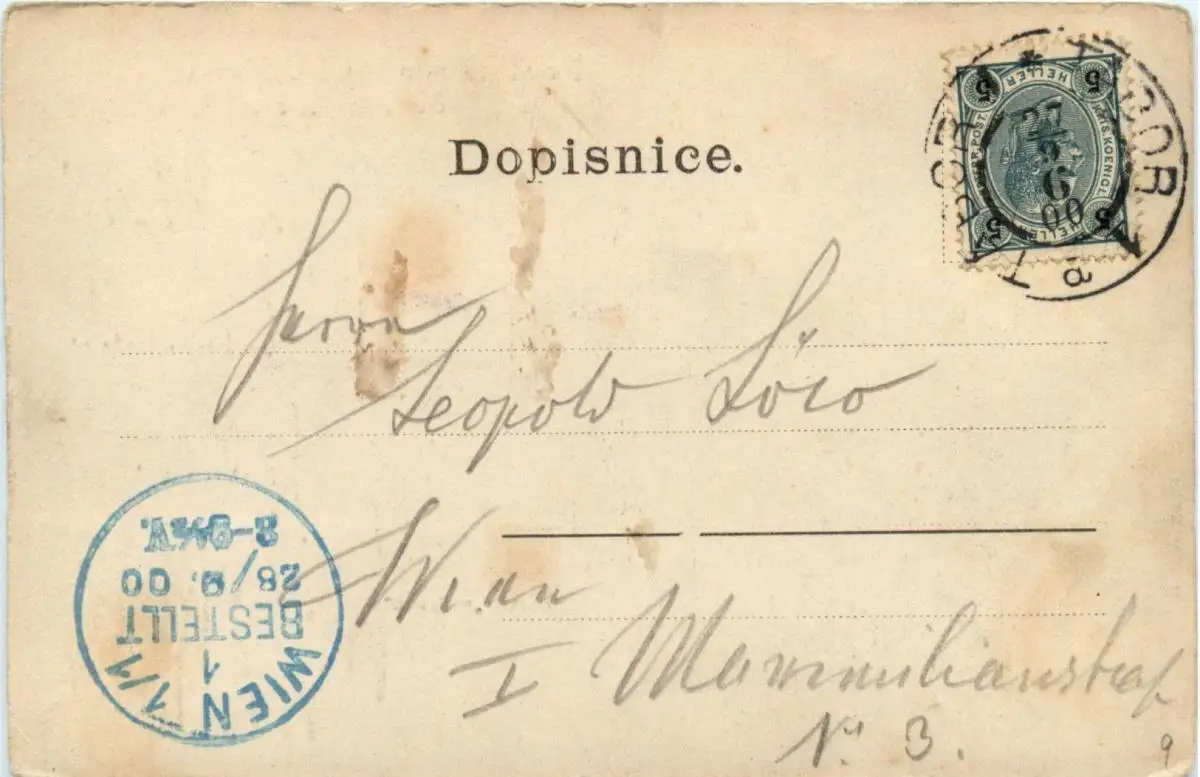 Dopisnice.
5 HELLER 5
KAIS. KOENIGL.
OESTERR. POST
5 HELLER 5
* TABOR * TABOR
27
9
6
00
a
Herrn
Leopold Löw
Wien
I Maximilianstraße
Nr 3.
WIEN 1/1
1
BESTELLT
28/9. 00
9